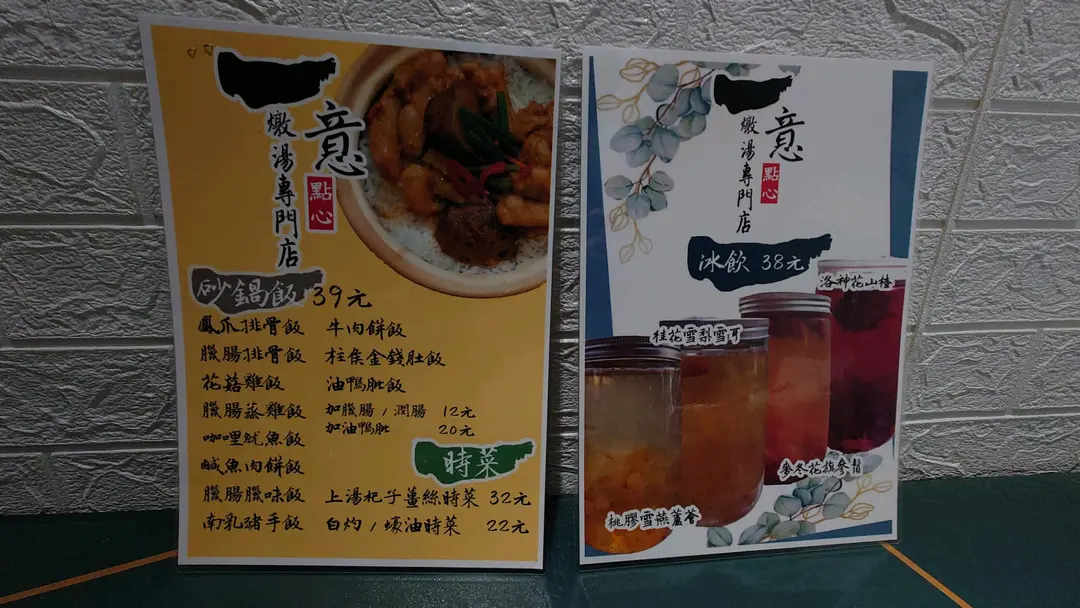 意
點心
燉湯專門店
砂鍋飯 39元
鳳爪排骨飯
臘腸排骨飯
花菇雞飯
臘腸蒸雞飯
咖哩魷魚飯
鹹魚肉餅飯
臘腸臘味飯
南乳豬手飯
牛肉餅飯
柱侯金錢肚飯
油鴨肶飯
加臘腸/潤腸 12元
加油鴨肶 20元
時菜
上湯杞子薑絲時菜 32元
白灼/蠔油時菜 22元
意
點心
燉湯專門店
冰飲 38元
洛神花山楂
桂花雪梨雪耳
麥冬花旗參
桃膠雪燕蘆薈